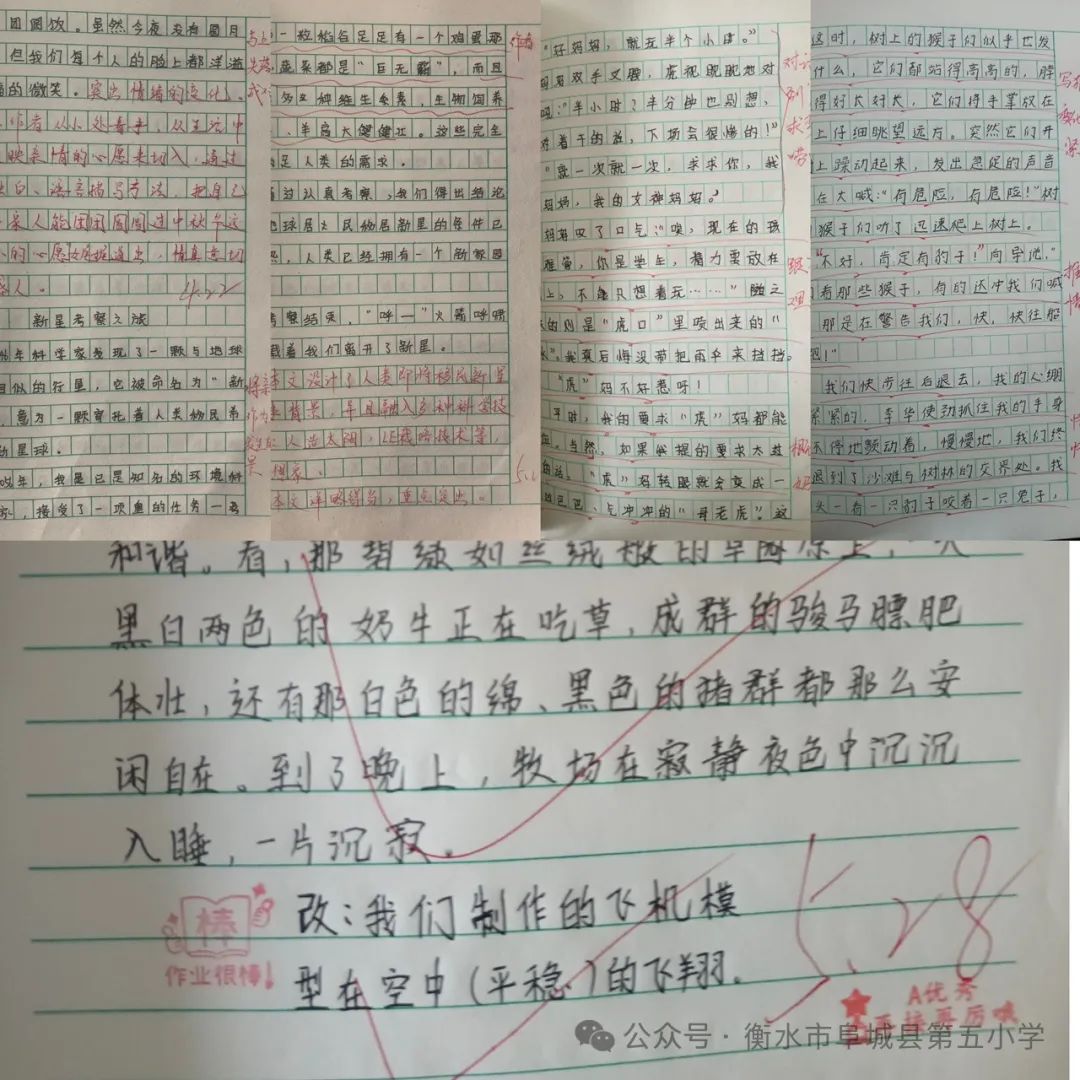 团圆饭。虽然今夜没有圆月
但我们每个人的脸上都洋溢
的微笑。突出情绪的变化。
作者从小处着手，从生活中
映亲情的心愿来切入，通过
白、语言描写方法，把自己
家人能团团圆圆过中秋
的心愿娓娓道出，情真意切
感人。
4.22
新星考察之旅
年科学家发现了一颗与地球
相似的行星，它被命名为“新
，意为一颗寄托着人类移民希
新星球。
年，我是已是知名的环境科
家，接受了一项重的任务—
一粒稻谷足足有一个鸡蛋那
蔬菜都是“巨无霸”，而且
多种维生素，生物饲养
、羊高大健壮。这些完全
足人类的需求。
通过认真考察，我们得出结论
地球居民移居新星的条件已
，人类已经拥有一个新家园
考察结束，“呼—”火箭呼啸
载着我们离开了新星。
本文设计了人类即将移民新星
背景，并且融入多种科学技
人造太阳，
想象。
本文详略得当，重点突出。
“好妈妈，就玩半个小时。”
妈妈双手叉腰，虎视眈眈地对
吼：“半小时？半分钟也别想，
对着干的话，下场会很惨的！”
“就一次就一次，求求你，我
妈妈，我的女神妈妈。”
妈妈叹了口气：“唉，现在的孩
难管，你是学生，精力要放在
上，不能只想着玩……”随之
的则是“虎口”里喷出来的“
水”。我真后悔没带把雨伞来挡挡。
“虎”妈不好惹呀！
平时，我的要求“虎”妈都能
。当然，如果我提的要求太过
的话，“虎”妈转眼就会变成一
巴巴、气冲冲的“母老虎”。这
这时，树上的猴子们似乎也发
什么，它们都站得高高的，脖
得好大好长，它们将手掌放在
上仔细眺望远方。突然它们开
上躁动起来，发出急促的声音
在大喊：“有危险，有危险！”树
猴子们听了迅速爬上树上。
“不好，肯定有豹子！”向导说，“
看那些猴子，有的还冲我们喊
那是在警告我们，快，快往船
吧！”
我们快步往后退去，我的心绷
紧紧的，李华使劲抓住我的手身
不停地颤动着，慢慢地，我们终
退到了沙滩与树林的交界处。我
头一看一只豹子咬着一只兔子，
和谐。看，那碧绿如丝绒般的草
黑白两色的奶牛正在吃草，成群的骏马膘肥
体壮，还有那白色的绵、黑色的猪群都那么安
闲自在。到了晚上，牧场在寂静夜色中沉沉
入睡，一片沉寂。
改：我们制作的飞机模
型在空中（平稳）的飞翔。
棒
作业很棒！
5.28
A优秀
公众号·衡水市阜城县第五小学